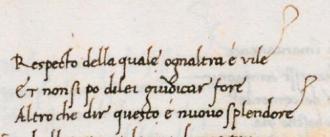 Respecto della quale ogn altra è vile
Et non si po di lei giudicar fore
Altro che dir questo è nuovo splendore